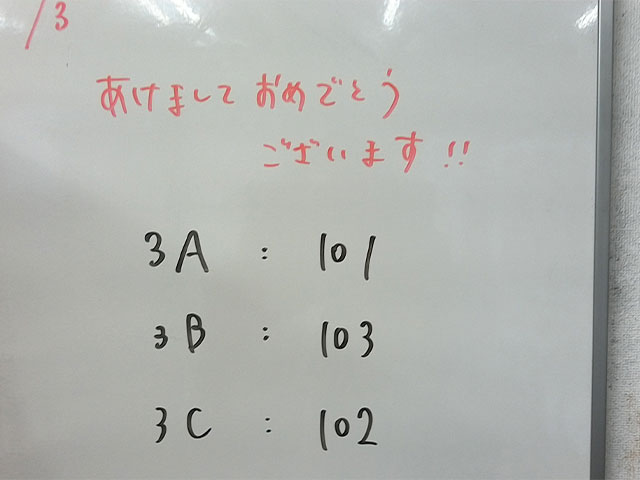 /3
あけましておめでとう
ございます!!
3A : 101
3B : 103
3C : 102